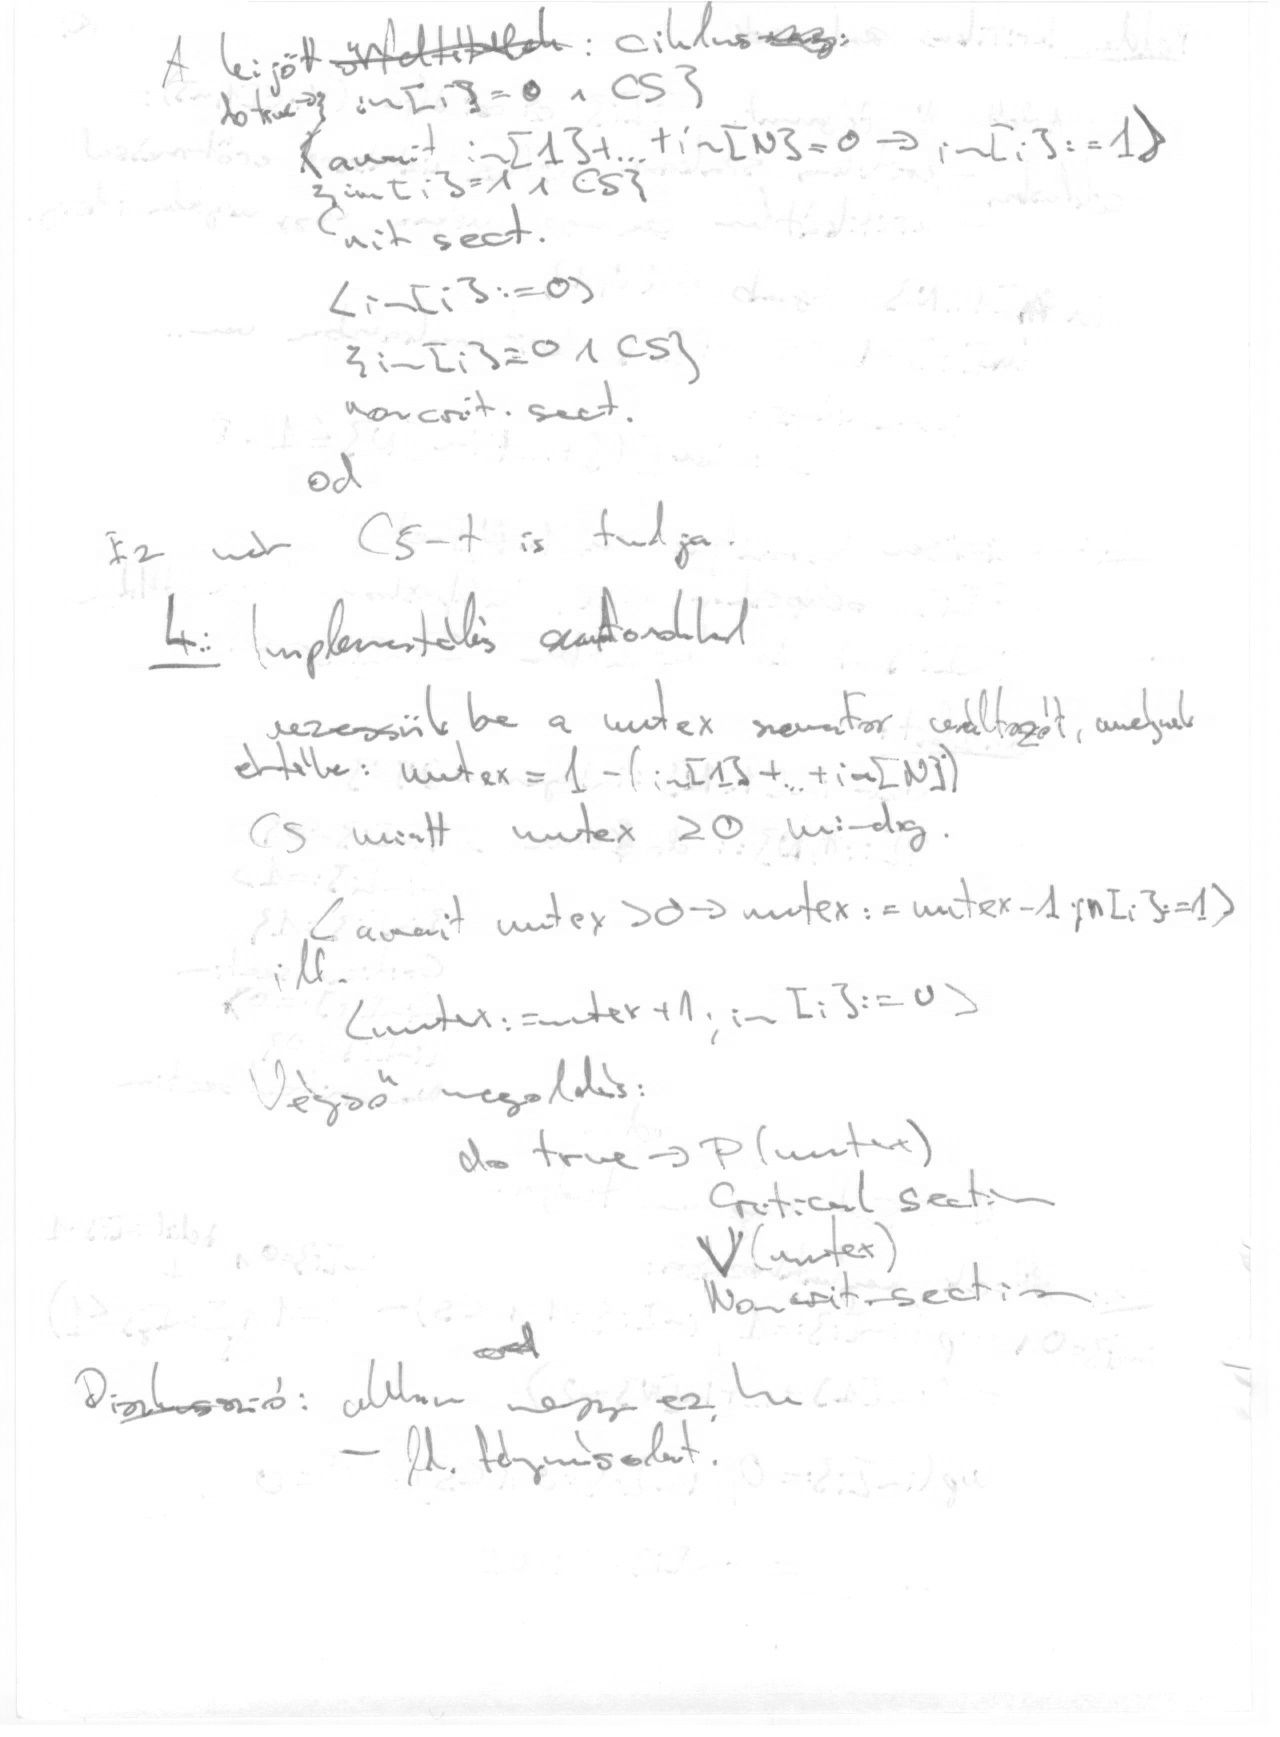 A kijött őrfeltételek: ciklus
do true → {in[i]=0 ∧ CS}
<await in[1]+...+in[N]=0 → in[i]:=1>
{in[i]=1 ∧ CS}
Crit sect.
<in[i]:=0>
{in[i]=0 ∧ CS}
noncrit. sect.
od
Ez már CS-t is tudja.
4.: Implementálás
vezessük be a mutex szemafor változót, amelynek
értéke: mutex = 1-(in[1]+...+in[N])
CS miatt mutex ≥0 mindig.
<await mutex >0 → mutex:=mutex-1; in[i]:=1>
ill.
<mutex:=mutex+1; in[i]:=0>
Végső megoldás:
do true → P(mutex)
Critical section
V(mutex)
Noncrit-section
od
Diszkusszió: abban megy ez, ha
- ld. fénymásolat.